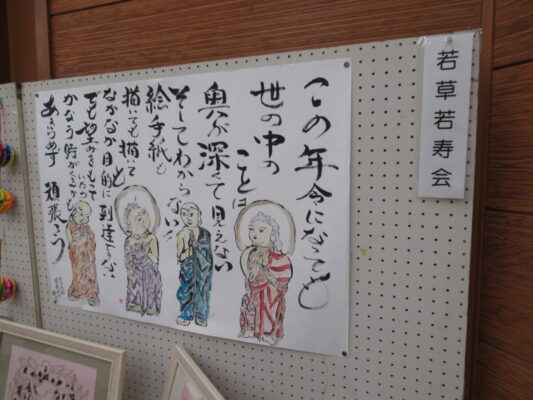 若草若寿会
この年令になっても
世の中の
ことは
奥が深くて見えない
そしてわからない!!
絵手紙も
描いても描いても
なかなか目的に到達できない
でも望みをもっていたら
かなう時がくるかも
あきらめず頑張ろう